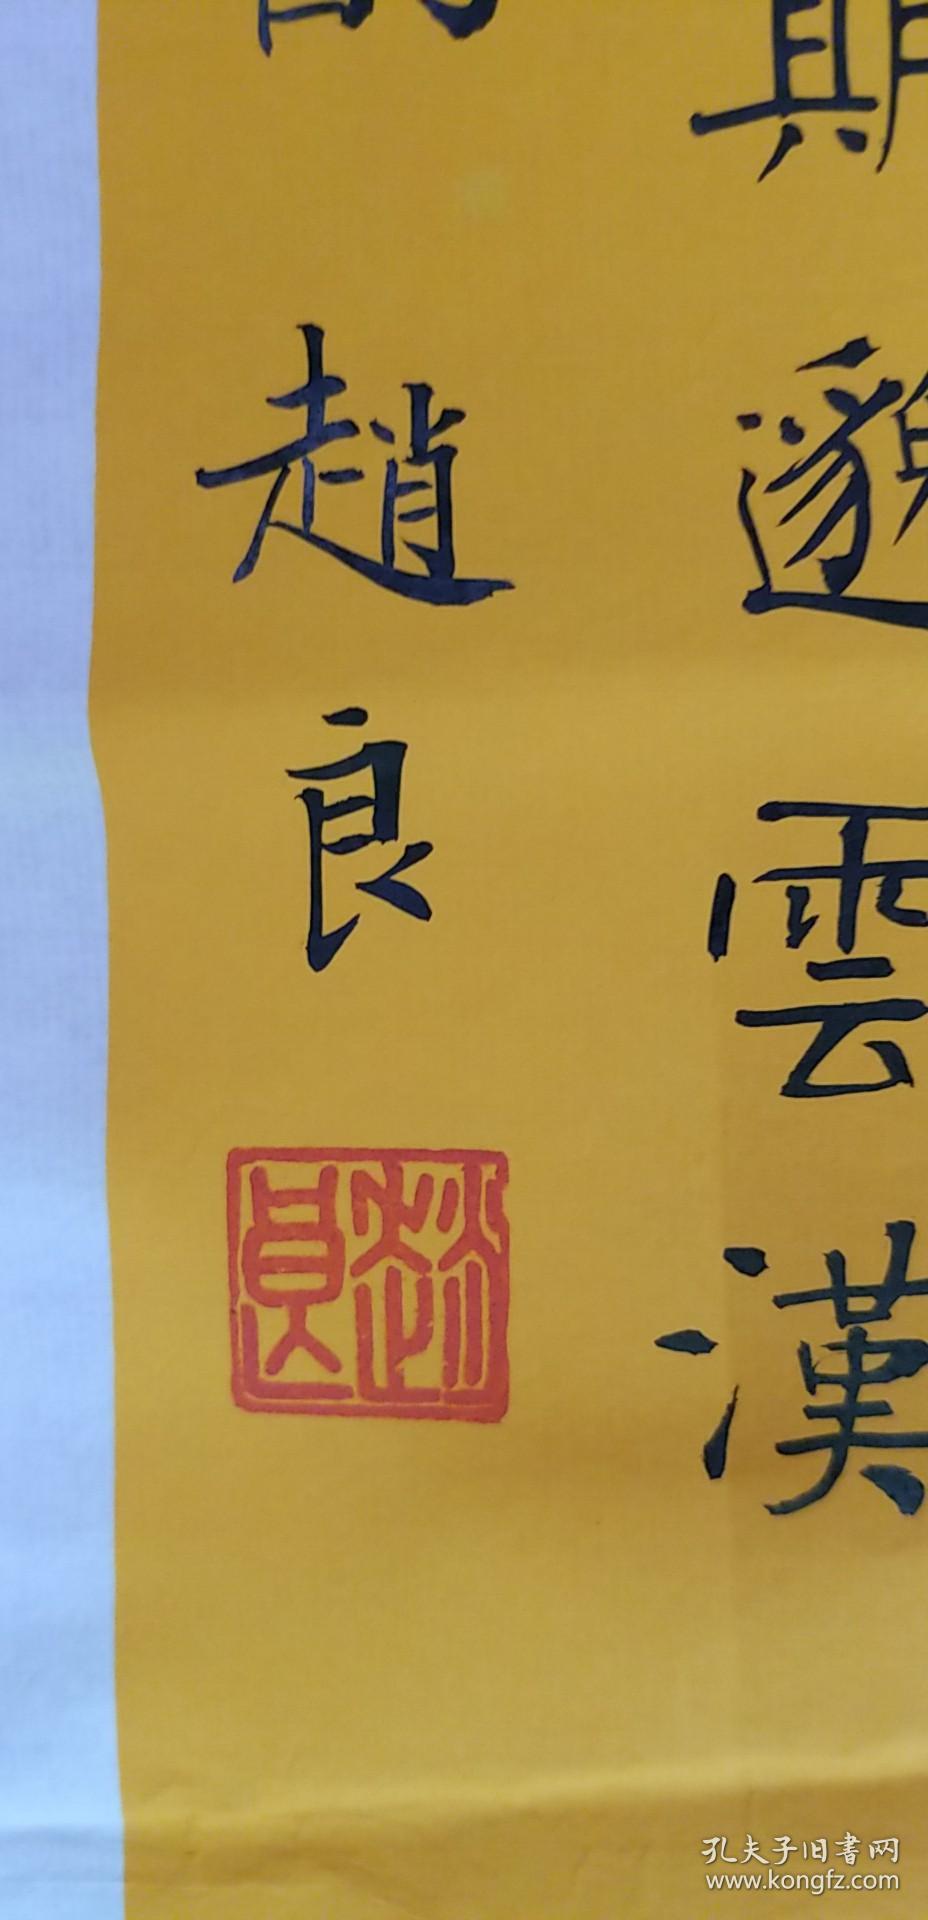 期邈雲漢
趙良
趙良
孔夫子旧書网
www.kongfz.com